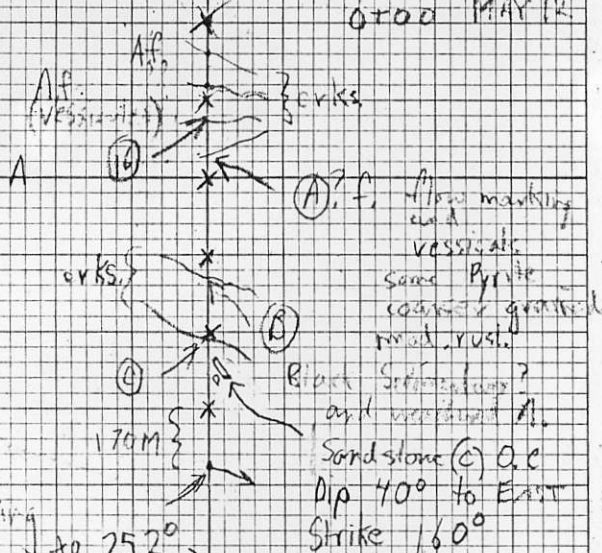 0+00 MAY 12
A.f.
A.f.
(vessicules)
} crks
16
A
A ? f. flow marking
and
vessicals
some Pyrite
coarser grained
mod. rust.
crks. {
B
C
Black Sedimentary?
and weathered A.
170M {
Sandstone (C) O.C
Dip 40° to EAST
Strike 160°
to 252°